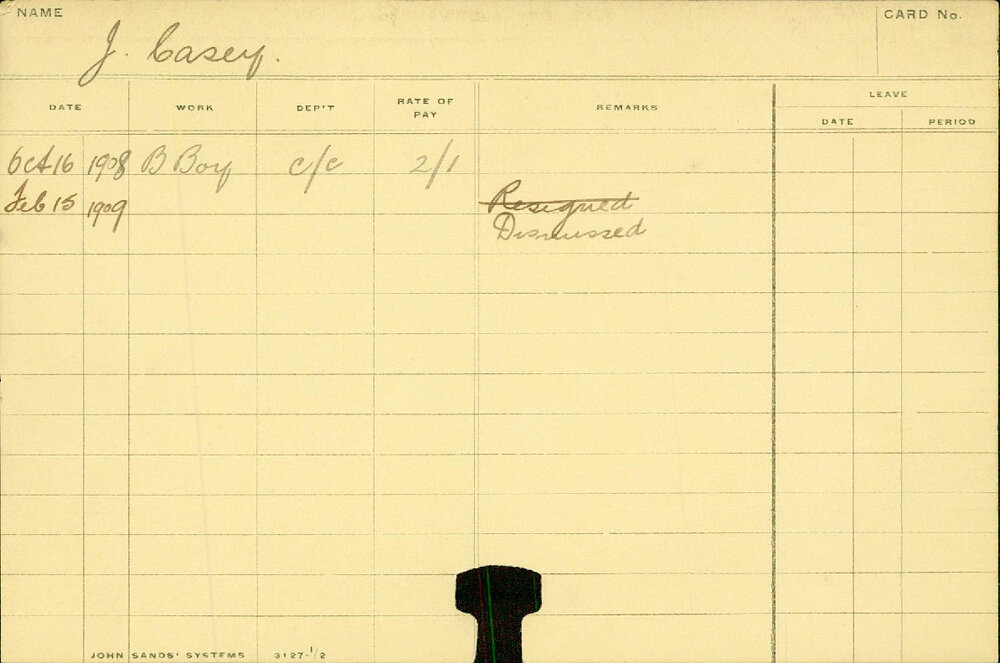 NAME
CARD No.
J. Casey.
DATE WORK DEP'T RATE OF PAY REMARKS LEAVE
DATE PERIOD
Oct 16 1908 B Boy c/c 2/1
Feb 15 1909 Resigned
Dismissed
JOHN SANDS' SYSTEMS 3127-1/2